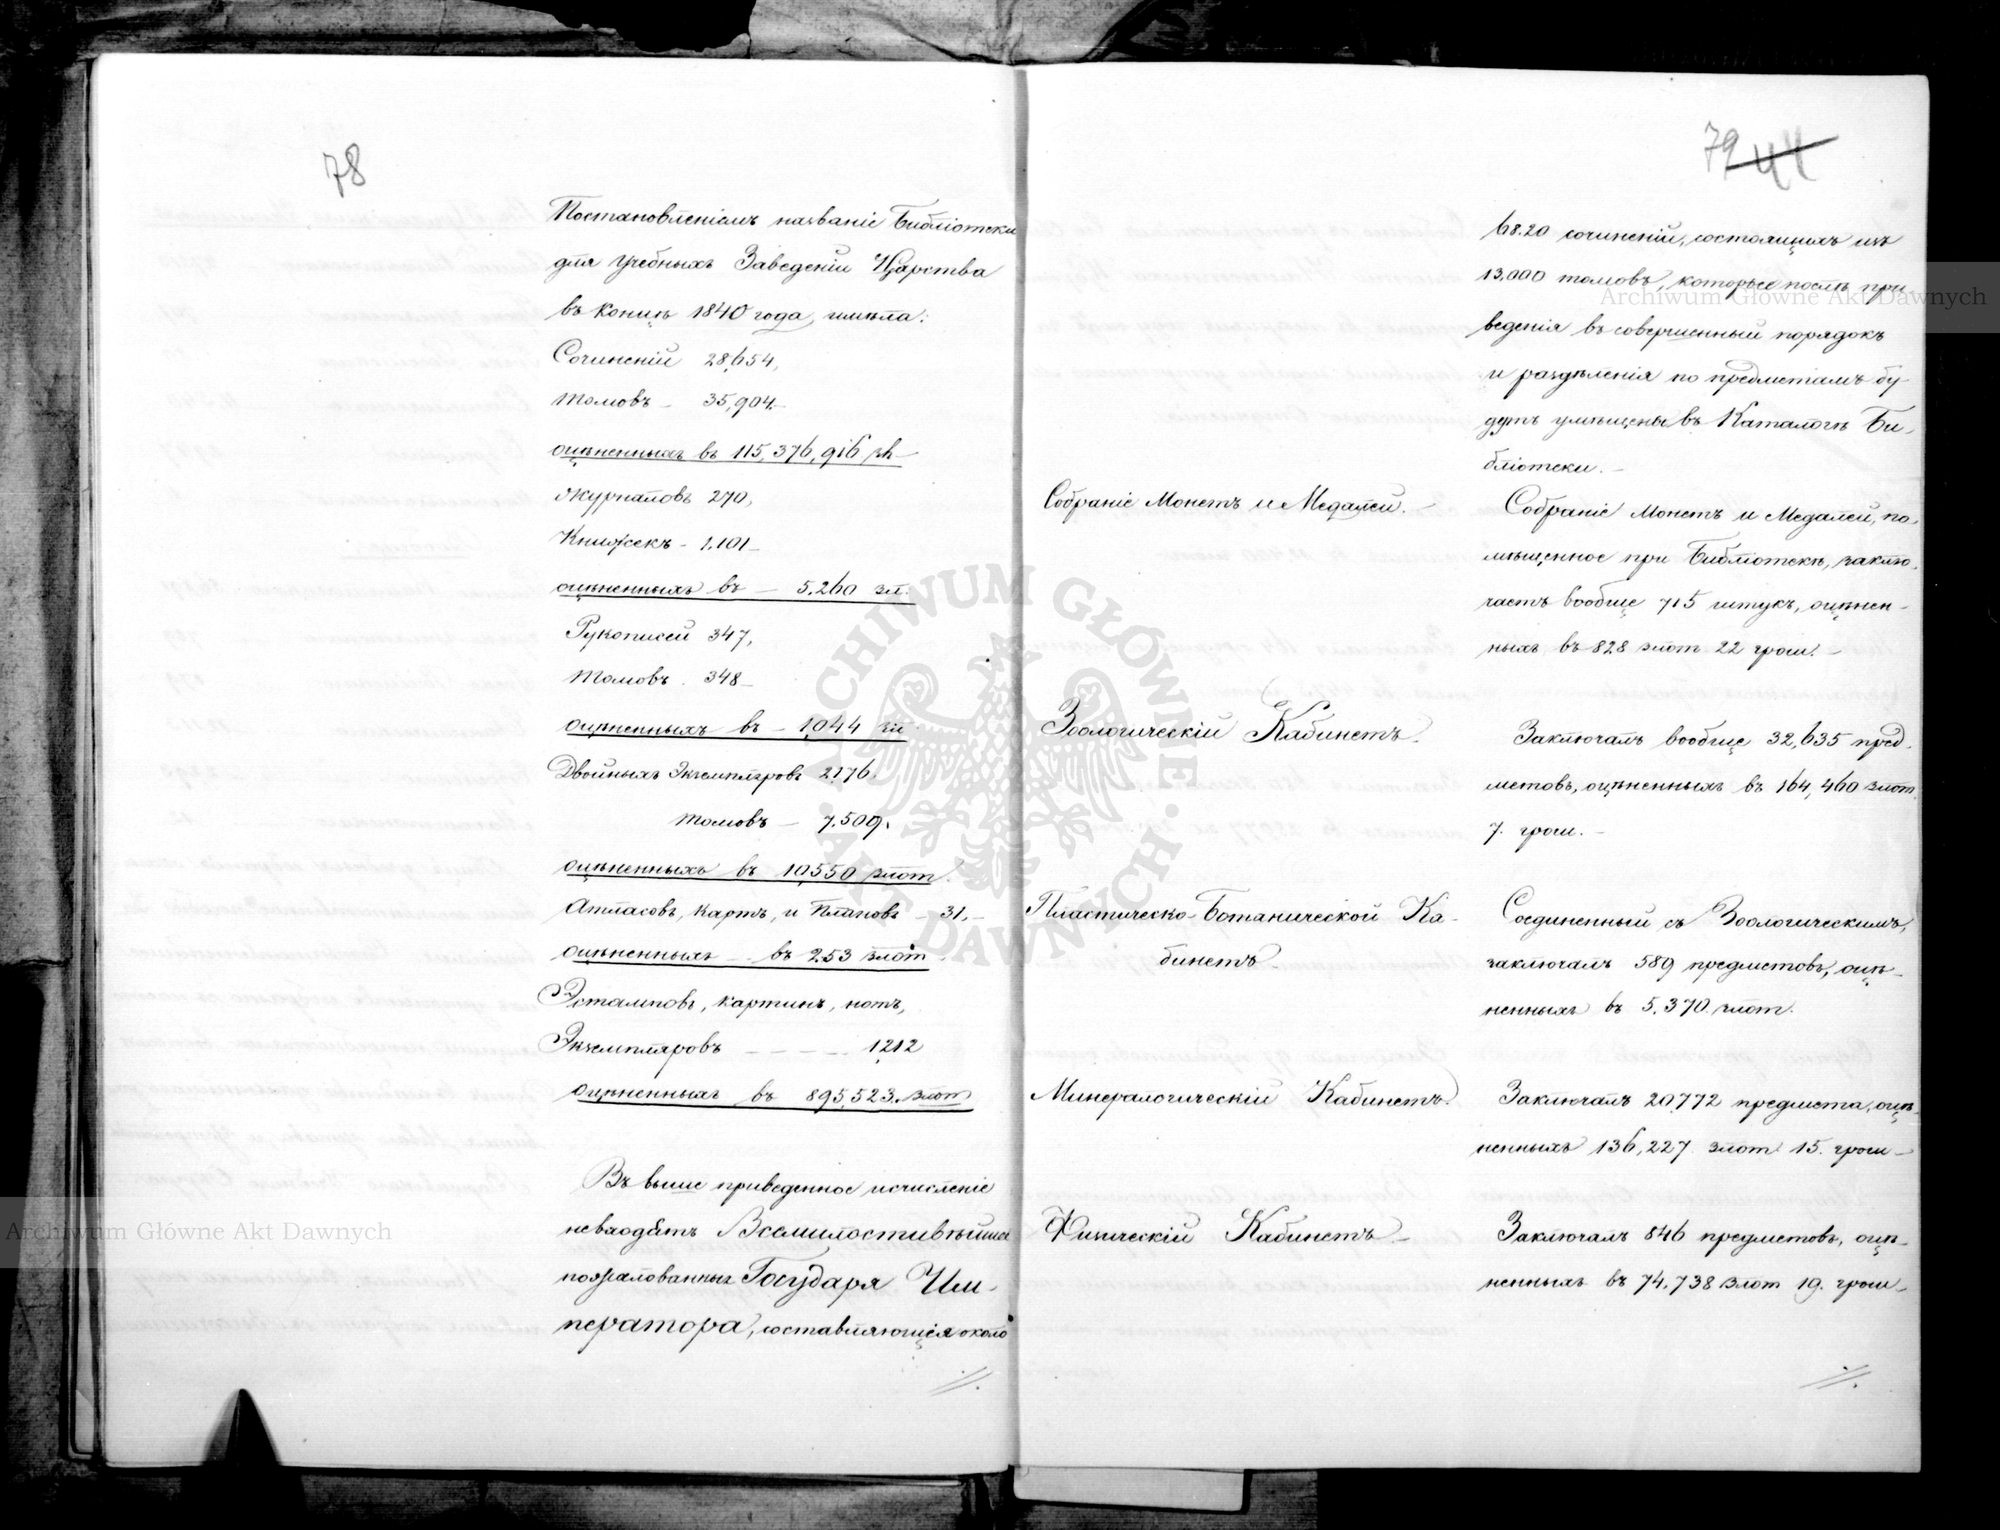 78
Постановленіемъ названіе Библіотеки
для учебныхъ Заведеній Царства
въ концѣ 1840 года, имѣла:
Сочиненій 28,654,
томовъ - 35,904.-
оцѣненныхъ въ 115,376,916 зл.-
Журналовъ 270,
Книжекъ - 1,101-
оцѣненныхъ въ - 5.260 зл.
Рукописей 347,
томовъ 348-
оцѣненныхъ въ - 1044 зл.
Двойныхъ Экземпляровъ 2176.
томовъ - 7.509.
оцѣненныхъ въ 10550 злот.
Атласовъ, картъ, и Плановъ - 31.-
оцѣненныхъ - въ 253 злот.
Эстамповъ, картинъ, нотъ,
Экземпляровъ - - - - 1212
оцѣненныхъ въ 895,523. злот
Въ выше приведенное исчисленіе
невходятъ Всемилостивѣйше
пожалованныя Государя Им-
ператора, составляющія около
79 44
68.20 сочиненій, состоящихъ изъ
13,000 томовъ, которые послѣ при-
веденія въ совершенный порядокъ
и раздѣленія по предметамъ бу-
дутъ умѣщены въ Каталогѣ Би-
бліотеки. -
Собраніе Монетъ и Медалей. -
Собраніе Монетъ и Медалей, по-
мѣщенное при Библіотекѣ, заклю-
чаетъ вообще 715 штукъ, оцѣнен-
ныхъ въ 828 злот 22 грош. -
Зоологическій Кабинетъ.
Заключалъ вообще 32,635 пред-
метовъ, оцѣненныхъ въ 164,460 злот.
7. грош. -
Пластическо-Ботанической Ка-
бинетъ.
Соединенный съ Зоологическимъ,
заключалъ 589 предметовъ, оцѣ-
ненныхъ въ 5.370. злот.
Минералогическій Кабинетъ.
Заключалъ 20772 предмета, оцѣ-
ненныхъ 136,227 злот 15. грош -
Физическій Кабинетъ -
Заключалъ 846 предметовъ, оцѣ-
ненныхъ въ 74.738 злот 19. грош -
Archiwum Główne Akt Dawnych
Archiwum Główne Akt Dawnych
ARCHIWUM GŁÓWNE AKT DAWNYCH